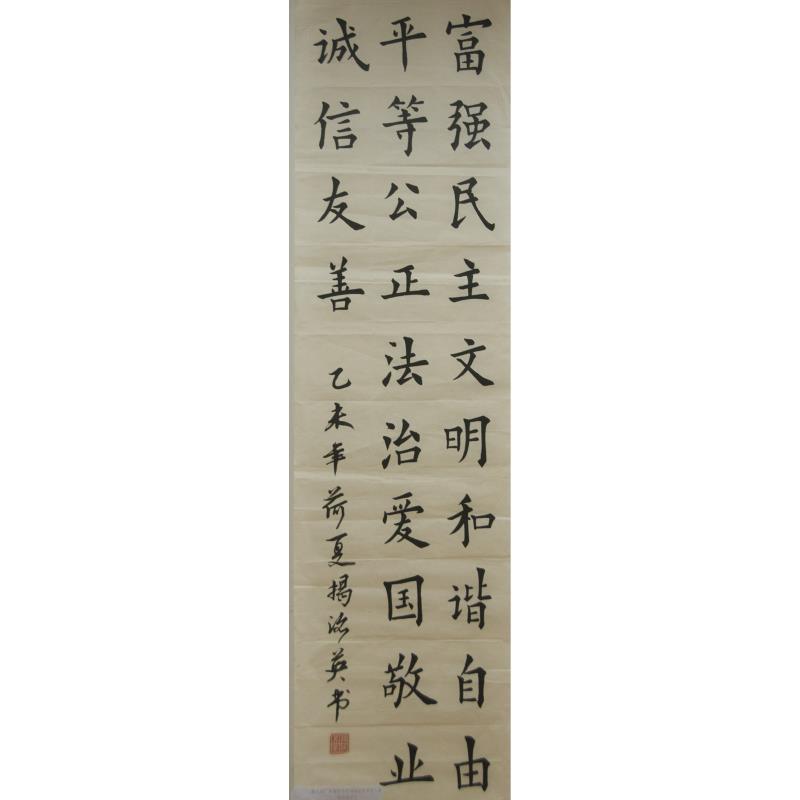 富强民主文明和谐自由
平等公正法治爱国敬业
诚信友善 乙未年荷夏揭 英书